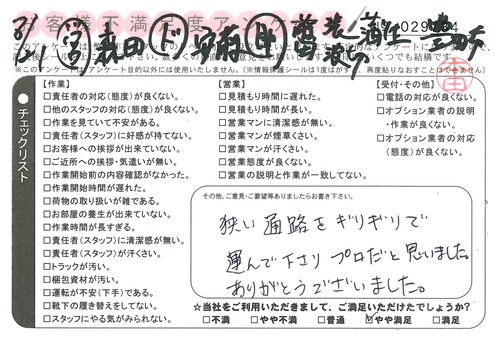 お客様不満足度アンケート
029
※このアンケートはアンケート目的以外には使用いたしません。(※情報保護シールは1度はがすと、再度貼りなおすことはできません)
チェックリスト
【作業】
□責任者の対応(態度)が良くない。
□他のスタッフの対応(態度)が良くない。
□作業を見ていて不安がある。
□責任者(スタッフ)に好感が持てない。
□お客様への挨拶が出来ていない。
□ご近所への挨拶・気遣いが無い。
□作業開始前の内容確認がなかった。
□作業開始時間が遅れた。
□荷物の取り扱いが雑である。
□お部屋の養生が出来ていない。
□作業時間が長すぎる。
□責任者(スタッフ)に清潔感が無い。
□責任者(スタッフ)が汗くさい。
□トラックが汚い。
□梱包資材が汚い。
□運転が不安(下手)である。
□靴下の履き替えをしてない。
□スタッフにやる気がみられない。
【営業】
□見積もり時間に遅れた。
□見積もり時間が長い。
□営業マンに清潔感が無い。
□営業マンが煙草くさい。
□営業マンが汗くさい。
□営業態度が良くない。
□営業の説明と作業が一致してない。
【受付・その他】
□電話の対応が良くない。
□オプション業者の説明・作業が良くない。
□オプション業者の対応(態度)が良くない。
その他、ご意見・ご要望等ありましたらお書き下さい。
狭い通路をギリギリで
運んで下さり プロだと思いました。
ありがとうございました。
☆当社をご利用いただきまして、ご満足いただけたでしょうか?
□不満 □やや不満 □普通 ☑やや満足 □満足